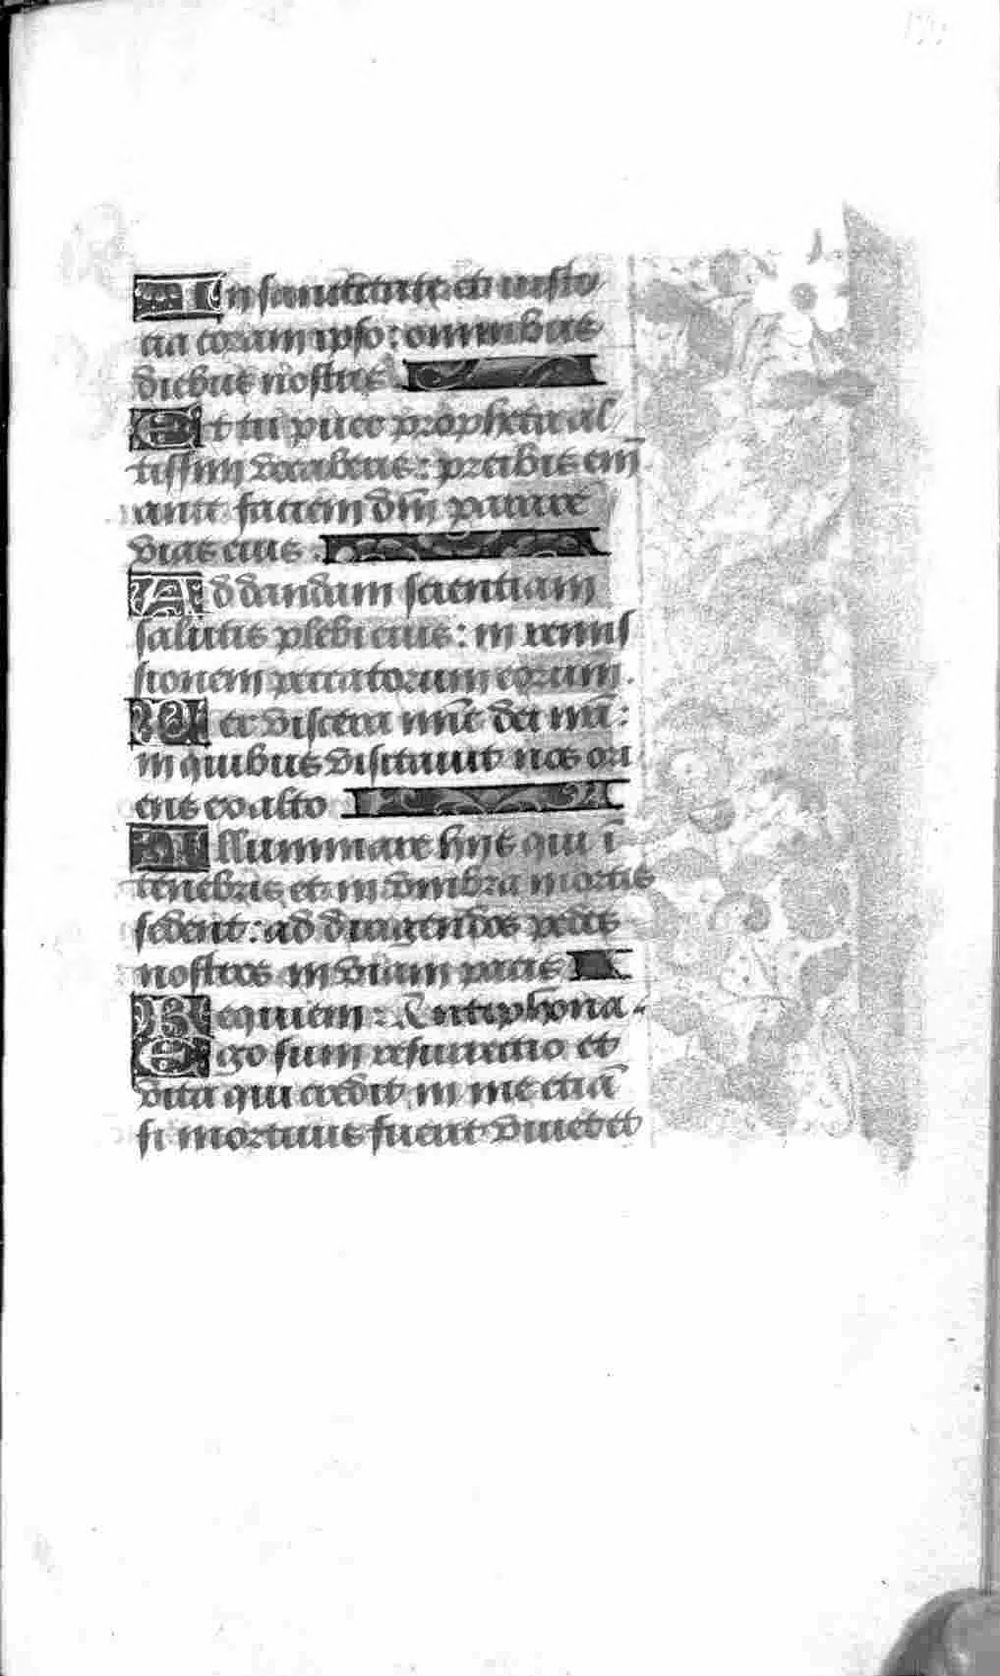 In sanctitate et iusti
cia coram ipso: omnibus
diebus nostris
Et tu puer propheta al
tissimi vocaberis: preibis eni̅
ante faciem dn̅i parare
vias eius
Ad dandam scientiam
salutis plebi eius: in remis
sionem peccatorum eorum.
Per viscera mi̅e dei nr̅i:
in quibus visitauit nos ori
ens ex alto
Illuminare hiis qui i̅
tenebris et in vmbra mortis
sedent: ad dirigendos pedes
nostros in viam pacis
Requiem: Antiphona.
Ego sum resurrectio et
vita qui credit in me etia̅
si mortuus fuerit viuet et